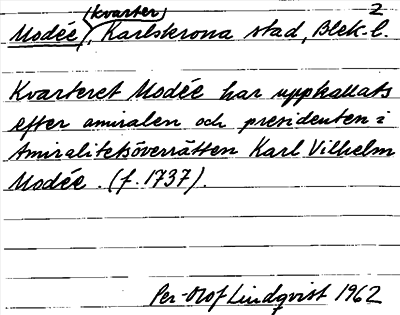 2
(kvarter)
Modée, Karlskrona stad, Blek. l.
Kvarteret Modée har uppkallats
efter amiralen och presidenten i
Amiralitetsöverrätten Karl Vilhelm
Modée. (f. 1737).
Per-Olof Lindqvist 1962